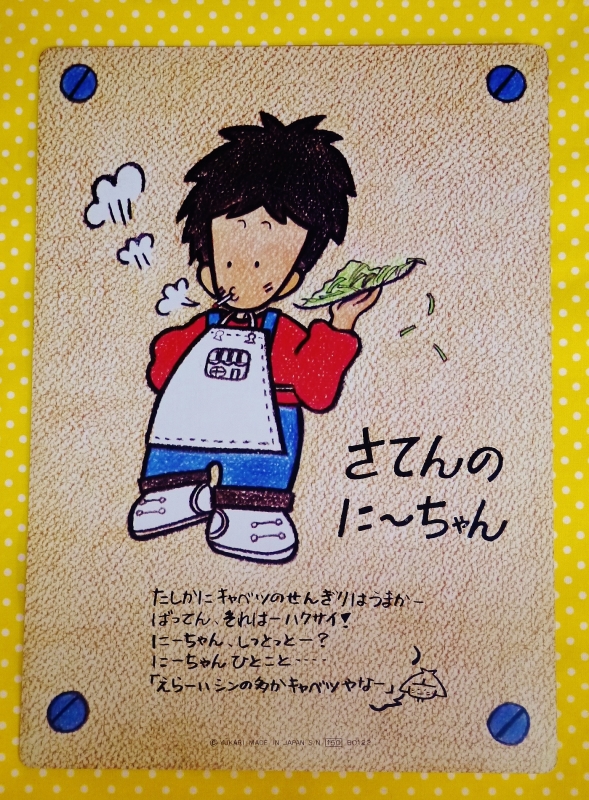 さてんの
に〜ちゃん
たしかにキャベツのせんぎりはうまかー
ばってん、それはーハクサイ!
にーちゃん、しっとっとー?
にーちゃんひとこと‥‥
「えらーいシンの多かキャベツやなー」
MADE IN JAPAN S.N. 150